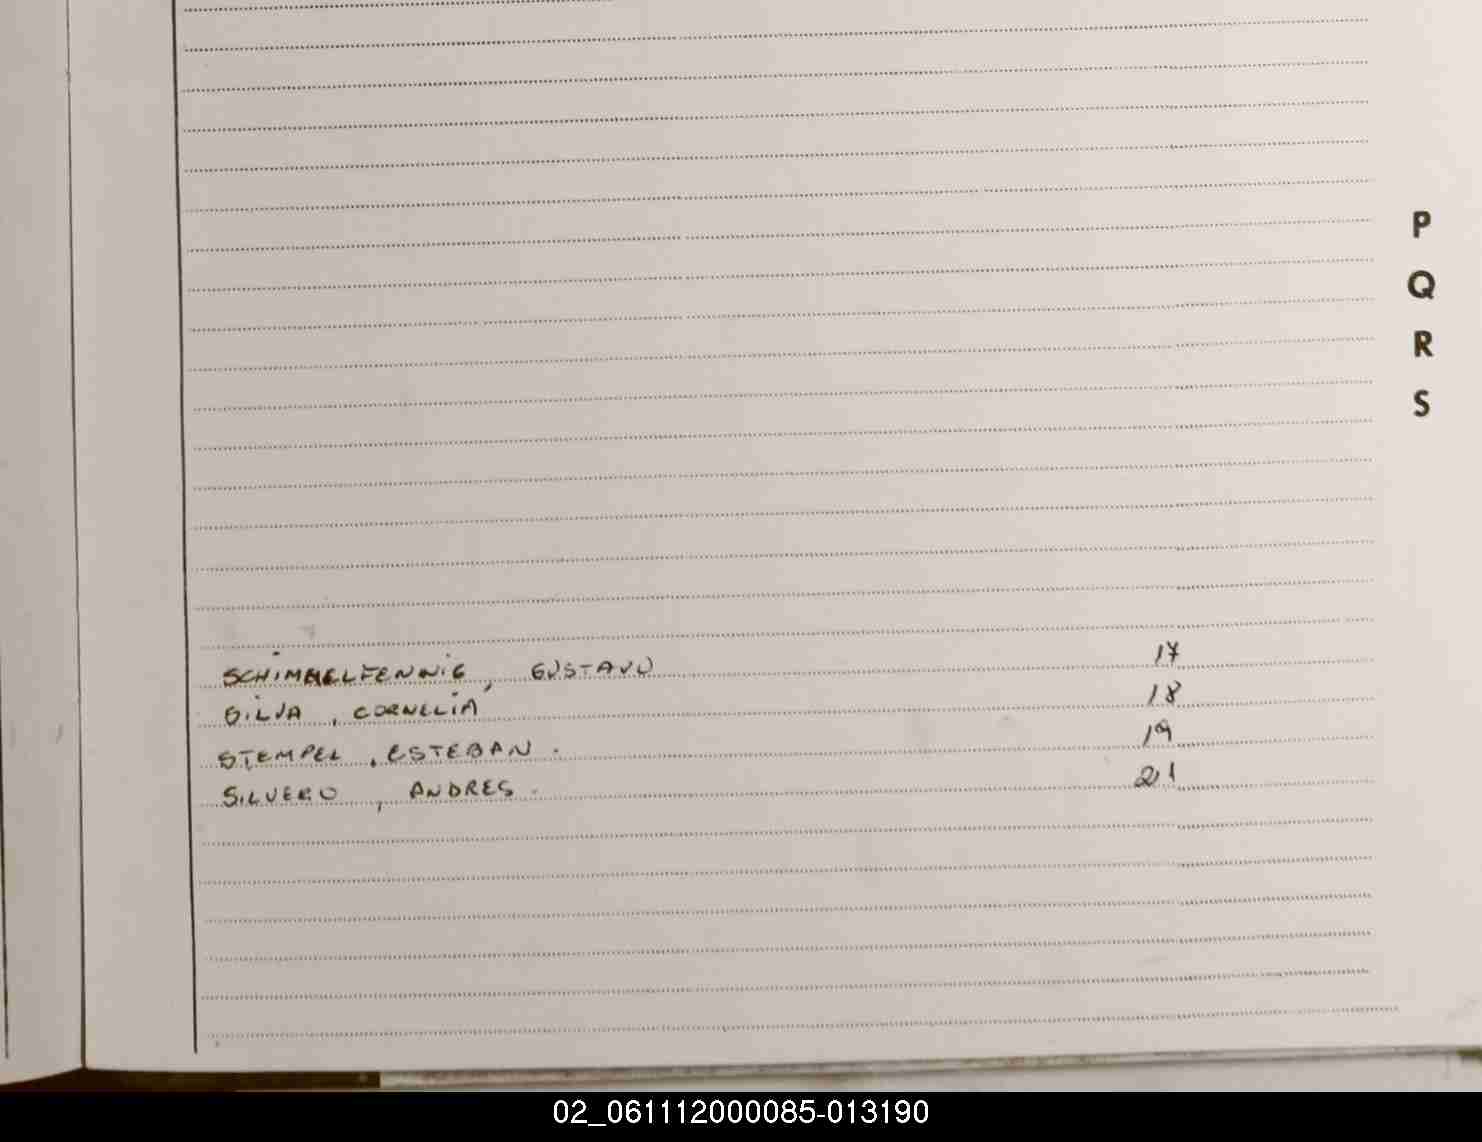 P
Q
R
S
SCHIMMELFENNIG, GUSTAVO 17
SILVA, CORNELIA 18
STEMPEL, ESTEBAN. 19
SILVERO, ANDRES. 21
02_061112000085-013190